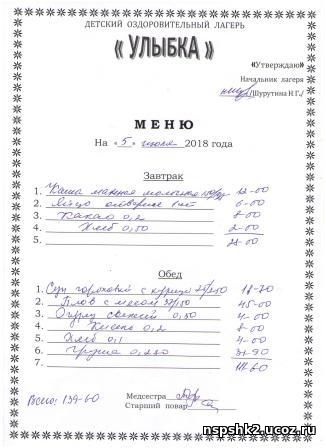 ДЕТСКИЙ ОЗДОРОВИТЕЛЬНЫЙ ЛАГЕРЬ
« УЛЫБКА »
«Утверждаю»
Начальник лагеря
/Шурутина Н Г./
МЕНЮ
На «5» июля 2018 года
Завтрак
1. Каша манная молочная 12-00
2. Яйцо 1 шт 6-00
3. Какао 0,2 8-00
4. Хлеб 0,50 2-00
5. 28-00
Обед
1. Суп гороховый с курицей 18-70
2. Плов с мясом 45-00
3. Огурец свежий 0,50 4-00
4. Кисель 0,2 8-00
5. Хлеб 0,1 4-00
6. Груша 31-90
7. 111-60
Всего: 139-60
Медсестра
Старший повар
nspshk2.ucoz.ru